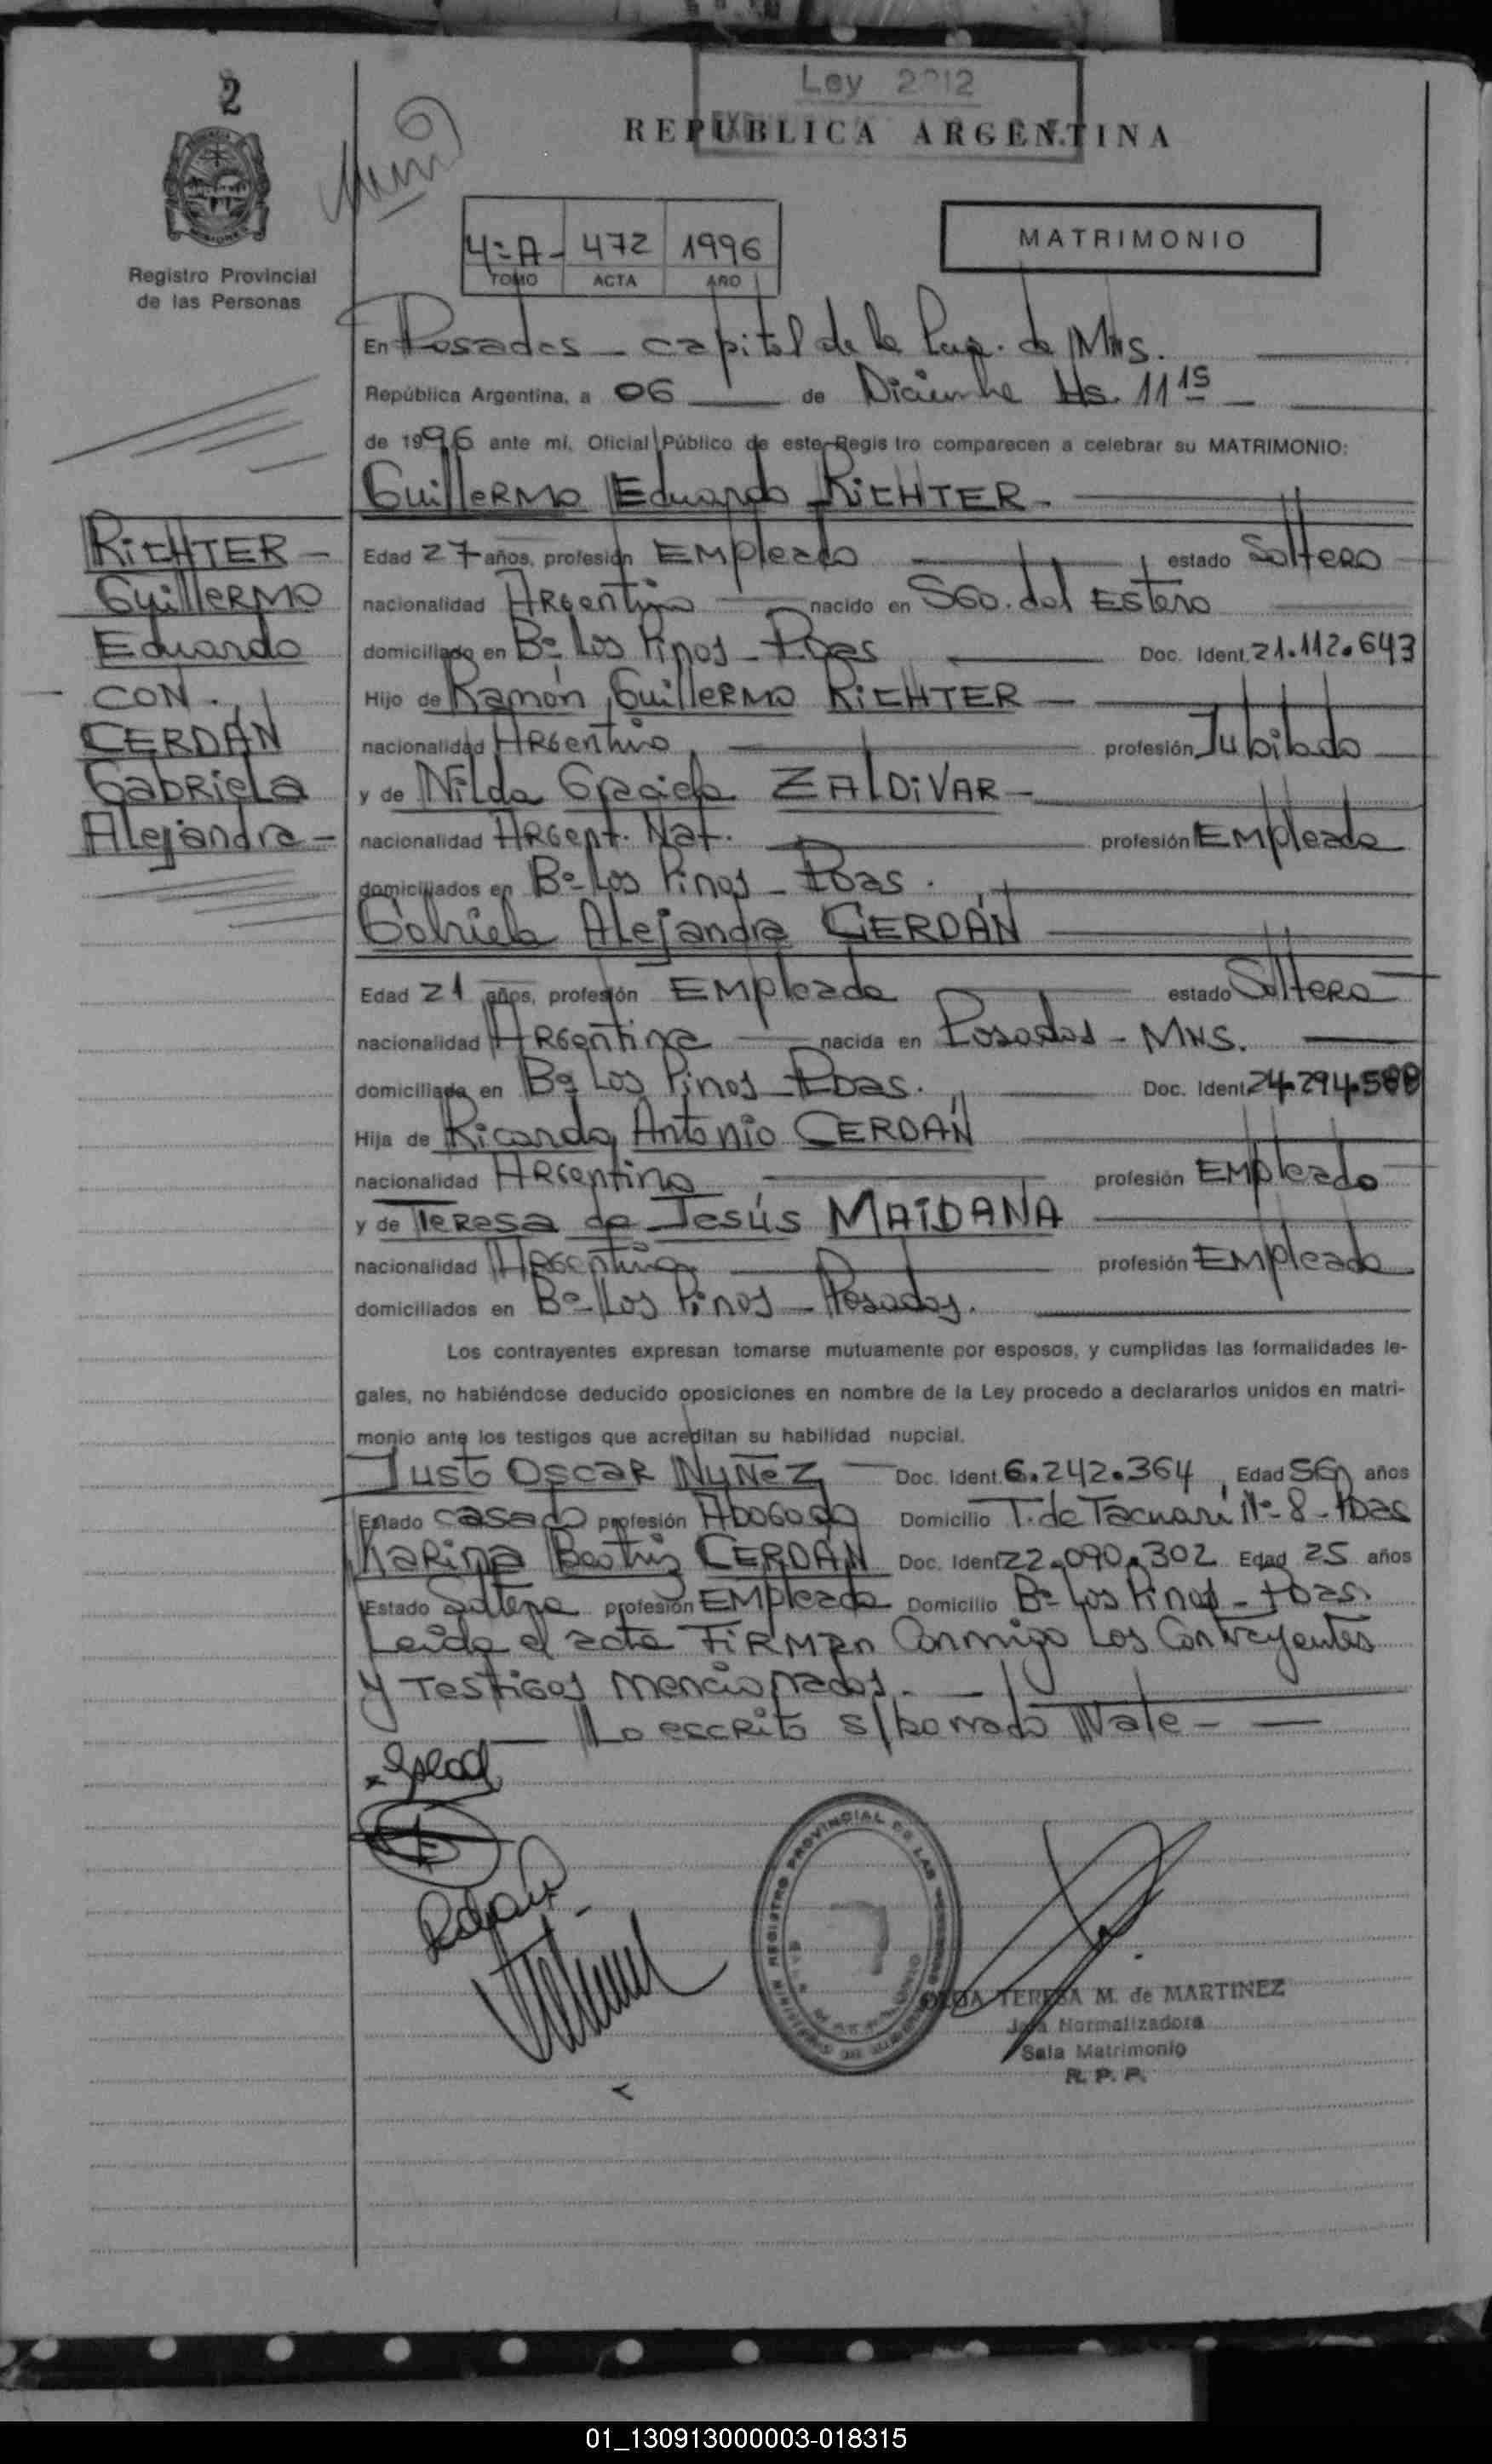 2
Ley 2012
REPUBLICA ARGENTINA
Registro Provincial
de las Personas
4º A - 472 1996
TOMO ACTA AÑO
MATRIMONIO
En Posadas - capital de la de Mns.
República Argentina, a 06 de Diciembre Hs. 11 15
de 1996 ante mí, Oficial Público de este Regis tro comparecen a celebrar su MATRIMONIO:
Guillermo Eduardo RICHTER -
RICHTER -
Guillermo
Eduardo
CON.
CERDÁN
Gabriela
Alejandra -
Edad 27 años, profesión Empleado estado Soltero
nacionalidad Argentino nacido en Sgo. del Estero
domiciliado en Bº Los Pinos - Pdas Doc. Ident. 21.112.643
Hijo de Ramón Guillermo RICHTER -
nacionalidad Argentino profesión Jubilado
y de Nilda Graciela ZALDIVAR -
nacionalidad Argent. Nat. profesión Empleada
domiciliados en Bº Los Pinos - Pdas.
Gabriela Alejandra CERDÁN
Edad 21 años, profesión Empleada estado Soltera
nacionalidad Argentina nacida en Posadas - Mns.
domiciliada en Bº Los Pinos - Pdas. Doc. Ident. 24.294.588
Hija de Ricardo Antonio CERDÁN
nacionalidad Argentino profesión Empleado
y de Teresa de Jesús MAIDANA
nacionalidad Argentina profesión Empleada
domiciliados en Bº Los Pinos - Posadas.
Los contrayentes expresan tomarse mutuamente por esposos, y cumplidas las formalidades le-
gales, no habiéndose deducido oposiciones en nombre de la Ley procedo a declararlos unidos en matri-
monio ante los testigos que acreditan su habilidad nupcial.
Justo Oscar Nuñez - Doc. Ident. 6.242.364 Edad 56 años
Estado casado profesión Abogado Domicilio T. de Tacuarí Nº 8 - Pdas
Karina Beatriz CERDÁN Doc. Ident. 22.090.302 Edad 25 años
Estado Soltera profesión Empleada Domicilio Bº Los Pinos - Pdas.
Leída el acta firman conmigo los contrayentes
y testigos mencionados. -
Lo escrito s/borrado Vale -
REGISTRO PROVINCIAL DE LAS PERSONAS
TERESA M. de MARTINEZ
Jefa Normalizadora
Sala Matrimonio
R. P. P.
01_130913000003-018315